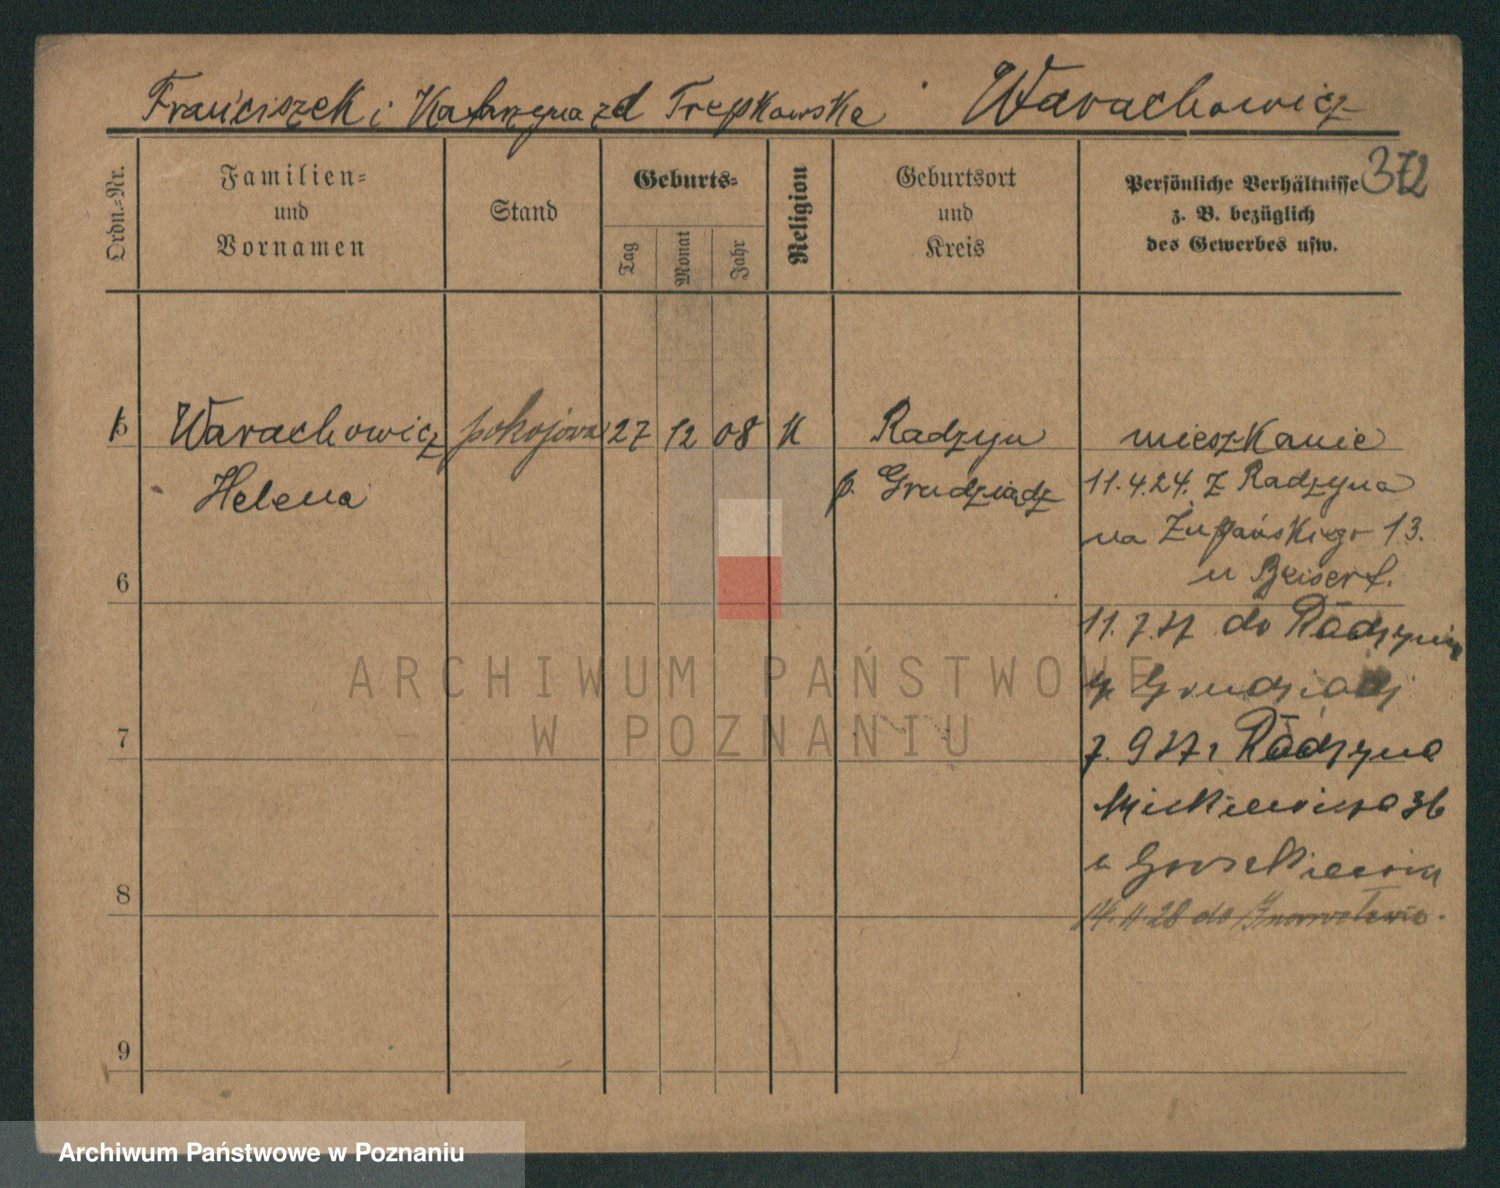 Franciszek i Katarzyna zd Trepkowska Warachowicz
372
Ordn.=Nr.
Familien=
und
Vornamen
Stand
Geburts=
Tag
Monat
Jahr
Religion
Geburtsort
und
Kreis
Persönliche Verhältnisse
z. B. bezüglich
des Gewerbes usw.
5 Warachowicz pokojowa 27 12 08 K Radzyn mieszkanie
Helena p. Grudziądz 11.4.24. z Radzyna
na Żupańskiego 13.
u Beisert.
6
11.7.27 do Radzyna
p Grudziądz
7
7.9 27 z Radzyna
Mickiewicza 36
u
8
14. 4 28 do Inowrocławia.
9
ARCHIWUM PAŃSTWOWE
W POZNANIU
Archiwum Państwowe w Poznaniu